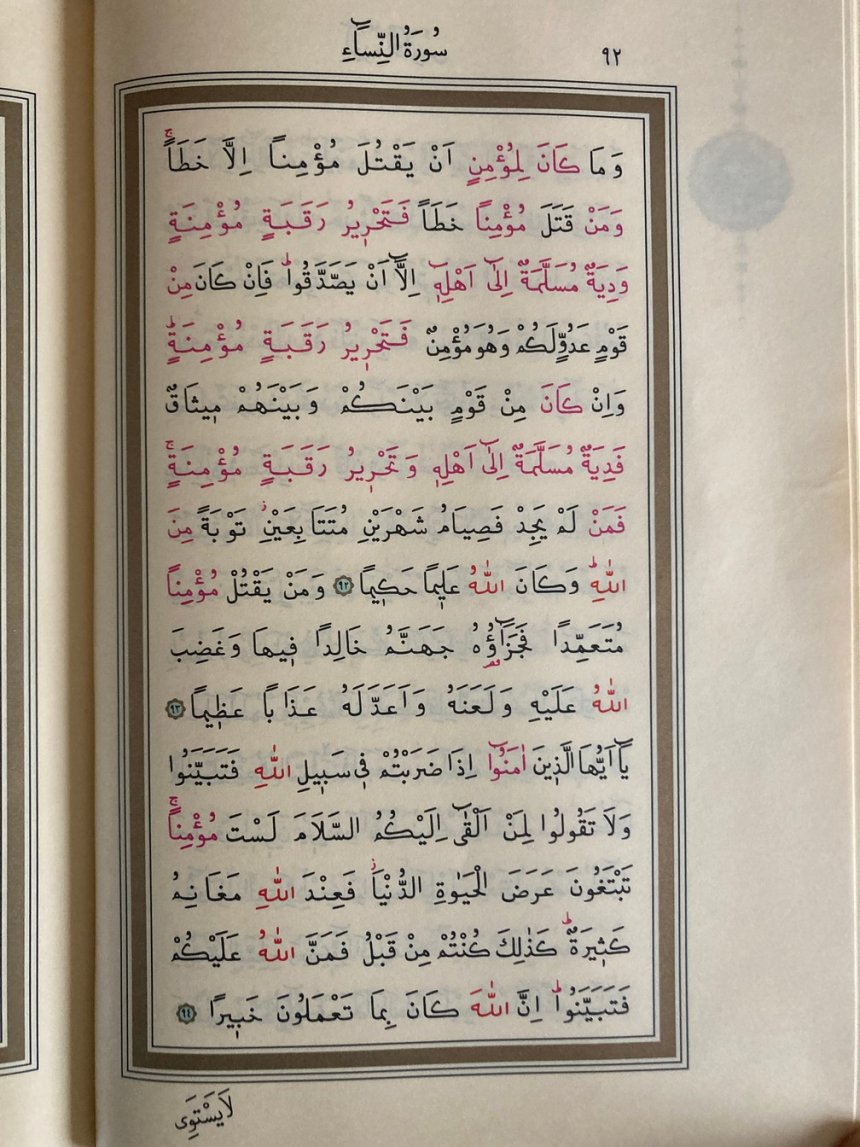 سُورَةُ النِّسَٓاءِ ٩٢
وَمَا كَانَ لِمُؤْمِنٍ اَنْ يَقْتُلَ مُؤْمِناً اِلَّا خَطَـٔاًۚ
وَمَنْ قَتَلَ مُؤْمِناً خَطَـٔاً فَتَحْرٖيرُ رَقَبَةٍ مُؤْمِنَةٍ
وَدِيَةٌ مُسَلَّمَةٌ اِلٰٓى اَهْلِهٖٓ اِلَّٓا اَنْ يَصَّدَّقُواؕ فَاِنْ كَانَ مِنْ
قَوْمٍ عَدُوٍّ لَكُمْ وَهُوَ مُؤْمِنٌ فَتَحْرٖيرُ رَقَبَةٍ مُؤْمِنَةٍؕ
وَاِنْ كَانَ مِنْ قَوْمٍ بَيْنَكُمْ وَبَيْنَهُمْ مٖيثَاقٌ
فَدِيَةٌ مُسَلَّمَةٌ اِلٰٓى اَهْلِهٖ وَتَحْرٖيرُ رَقَبَةٍ مُؤْمِنَةٍۚ
فَمَنْ لَمْ يَجِدْ فَصِيَامُ شَهْرَيْنِ مُتَتَابِعَيْنِؗ تَوْبَةً مِنَ
اللّٰهِؕ وَكَانَ اللّٰهُ عَلٖيماً حَكٖيماً ﴿٩٢﴾ وَمَنْ يَقْتُلْ مُؤْمِناً
مُتَعَمِّداً فَجَزَٓاؤُ۬هُ جَهَنَّمُ خَالِداً فٖيهَا وَغَضِبَ
اللّٰهُ عَلَيْهِ وَلَعَنَهُ وَاَعَدَّ لَهُ عَذَاباً عَظٖيماً ﴿٩٣﴾
يَٓا اَيُّهَا الَّذٖينَ اٰمَنُٓوا اِذَا ضَرَبْتُمْ فٖي سَبٖيلِ اللّٰهِ فَتَبَيَّنُوا
وَلَا تَقُولُوا لِمَنْ اَلْقٰٓى اِلَيْكُمُ السَّلَامَ لَسْتَ مُؤْمِناًۚ
تَبْتَغُونَ عَرَضَ الْحَيٰوةِ الدُّنْيَاؗ فَعِنْدَ اللّٰهِ مَغَانِمُ
كَثٖيرَةٌؕ كَذٰلِكَ كُنْتُمْ مِنْ قَبْلُ فَمَنَّ اللّٰهُ عَلَيْكُمْ
فَتَبَيَّنُواؕ اِنَّ اللّٰهَ كَانَ بِمَا تَعْمَلُونَ خَبٖيراً ﴿٩٤﴾
لَا يَسْتَوِي